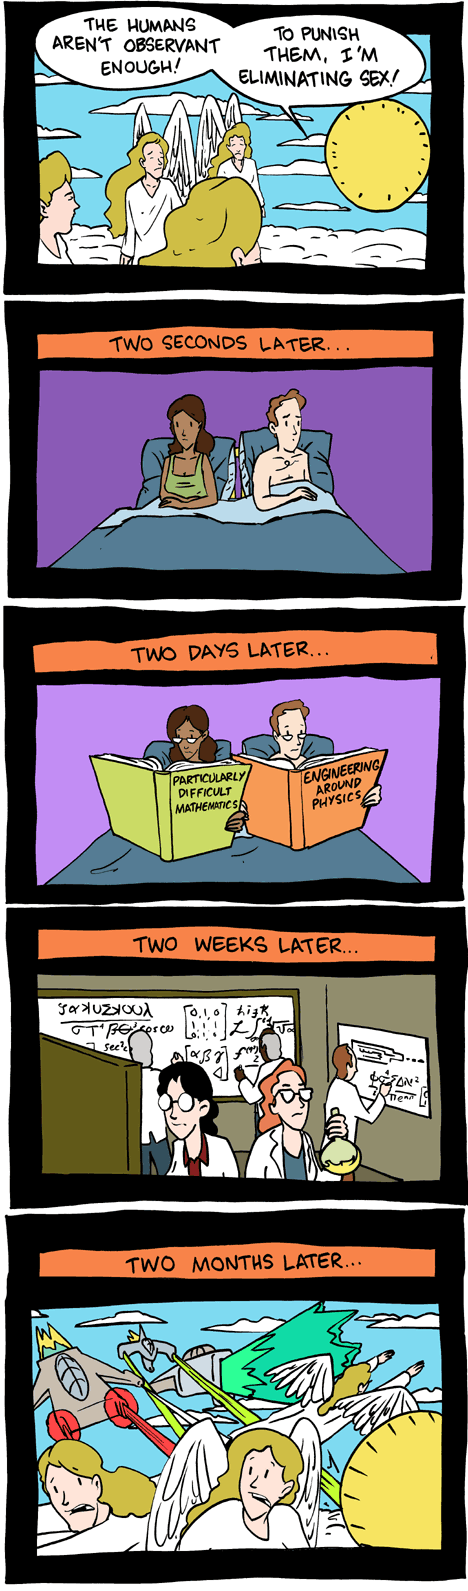 THE HUMANS
AREN'T OBSERVANT
ENOUGH!
TO PUNISH
THEM, I'M
ELIMINATING SEX!
TWO SECONDS LATER...
TWO DAYS LATER...
PARTICULARLY
DIFFICULT
MATHEMATICS
ENGINEERING
AROUND
PHYSICS
TWO WEEKS LATER...
TWO MONTHS LATER...